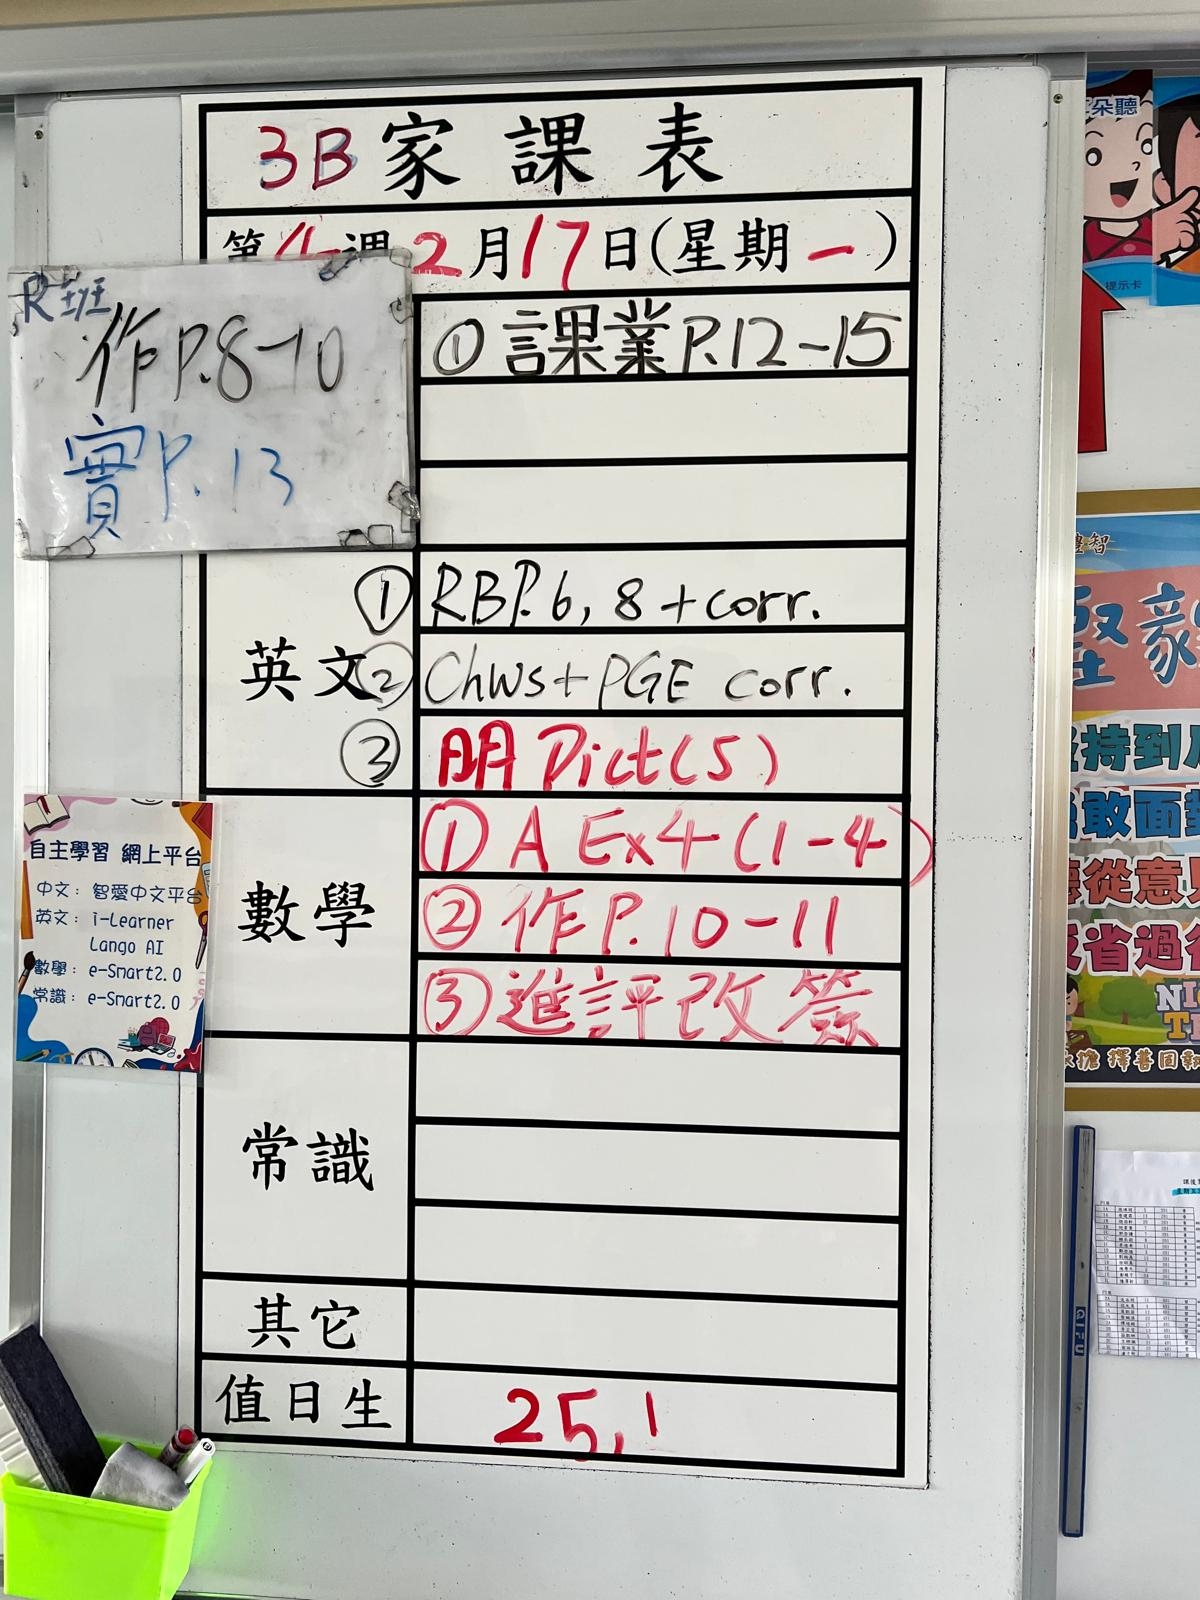 3B 家課表
第4週2月17日(星期一)
R班
作P.8-10
實P.13
① 課業P.12-15
英文
① RBP.6, 8+corr.
② Chws+PGE corr.
③ 明 Dict(5)
數學
① A Ex4(1-4)
② 作P.10-11
③ 進評改簽
常識
其它
值日生
25,1
自主學習 網上平台
中文:智愛中文平台
英文:i-Learner
Lango AI
數學:e-Smart2.0
常識:e-Smart2.0
朵聽
提示卡
智
毅
持到
敢面對
從意見
省過
擇善固執
GIFU